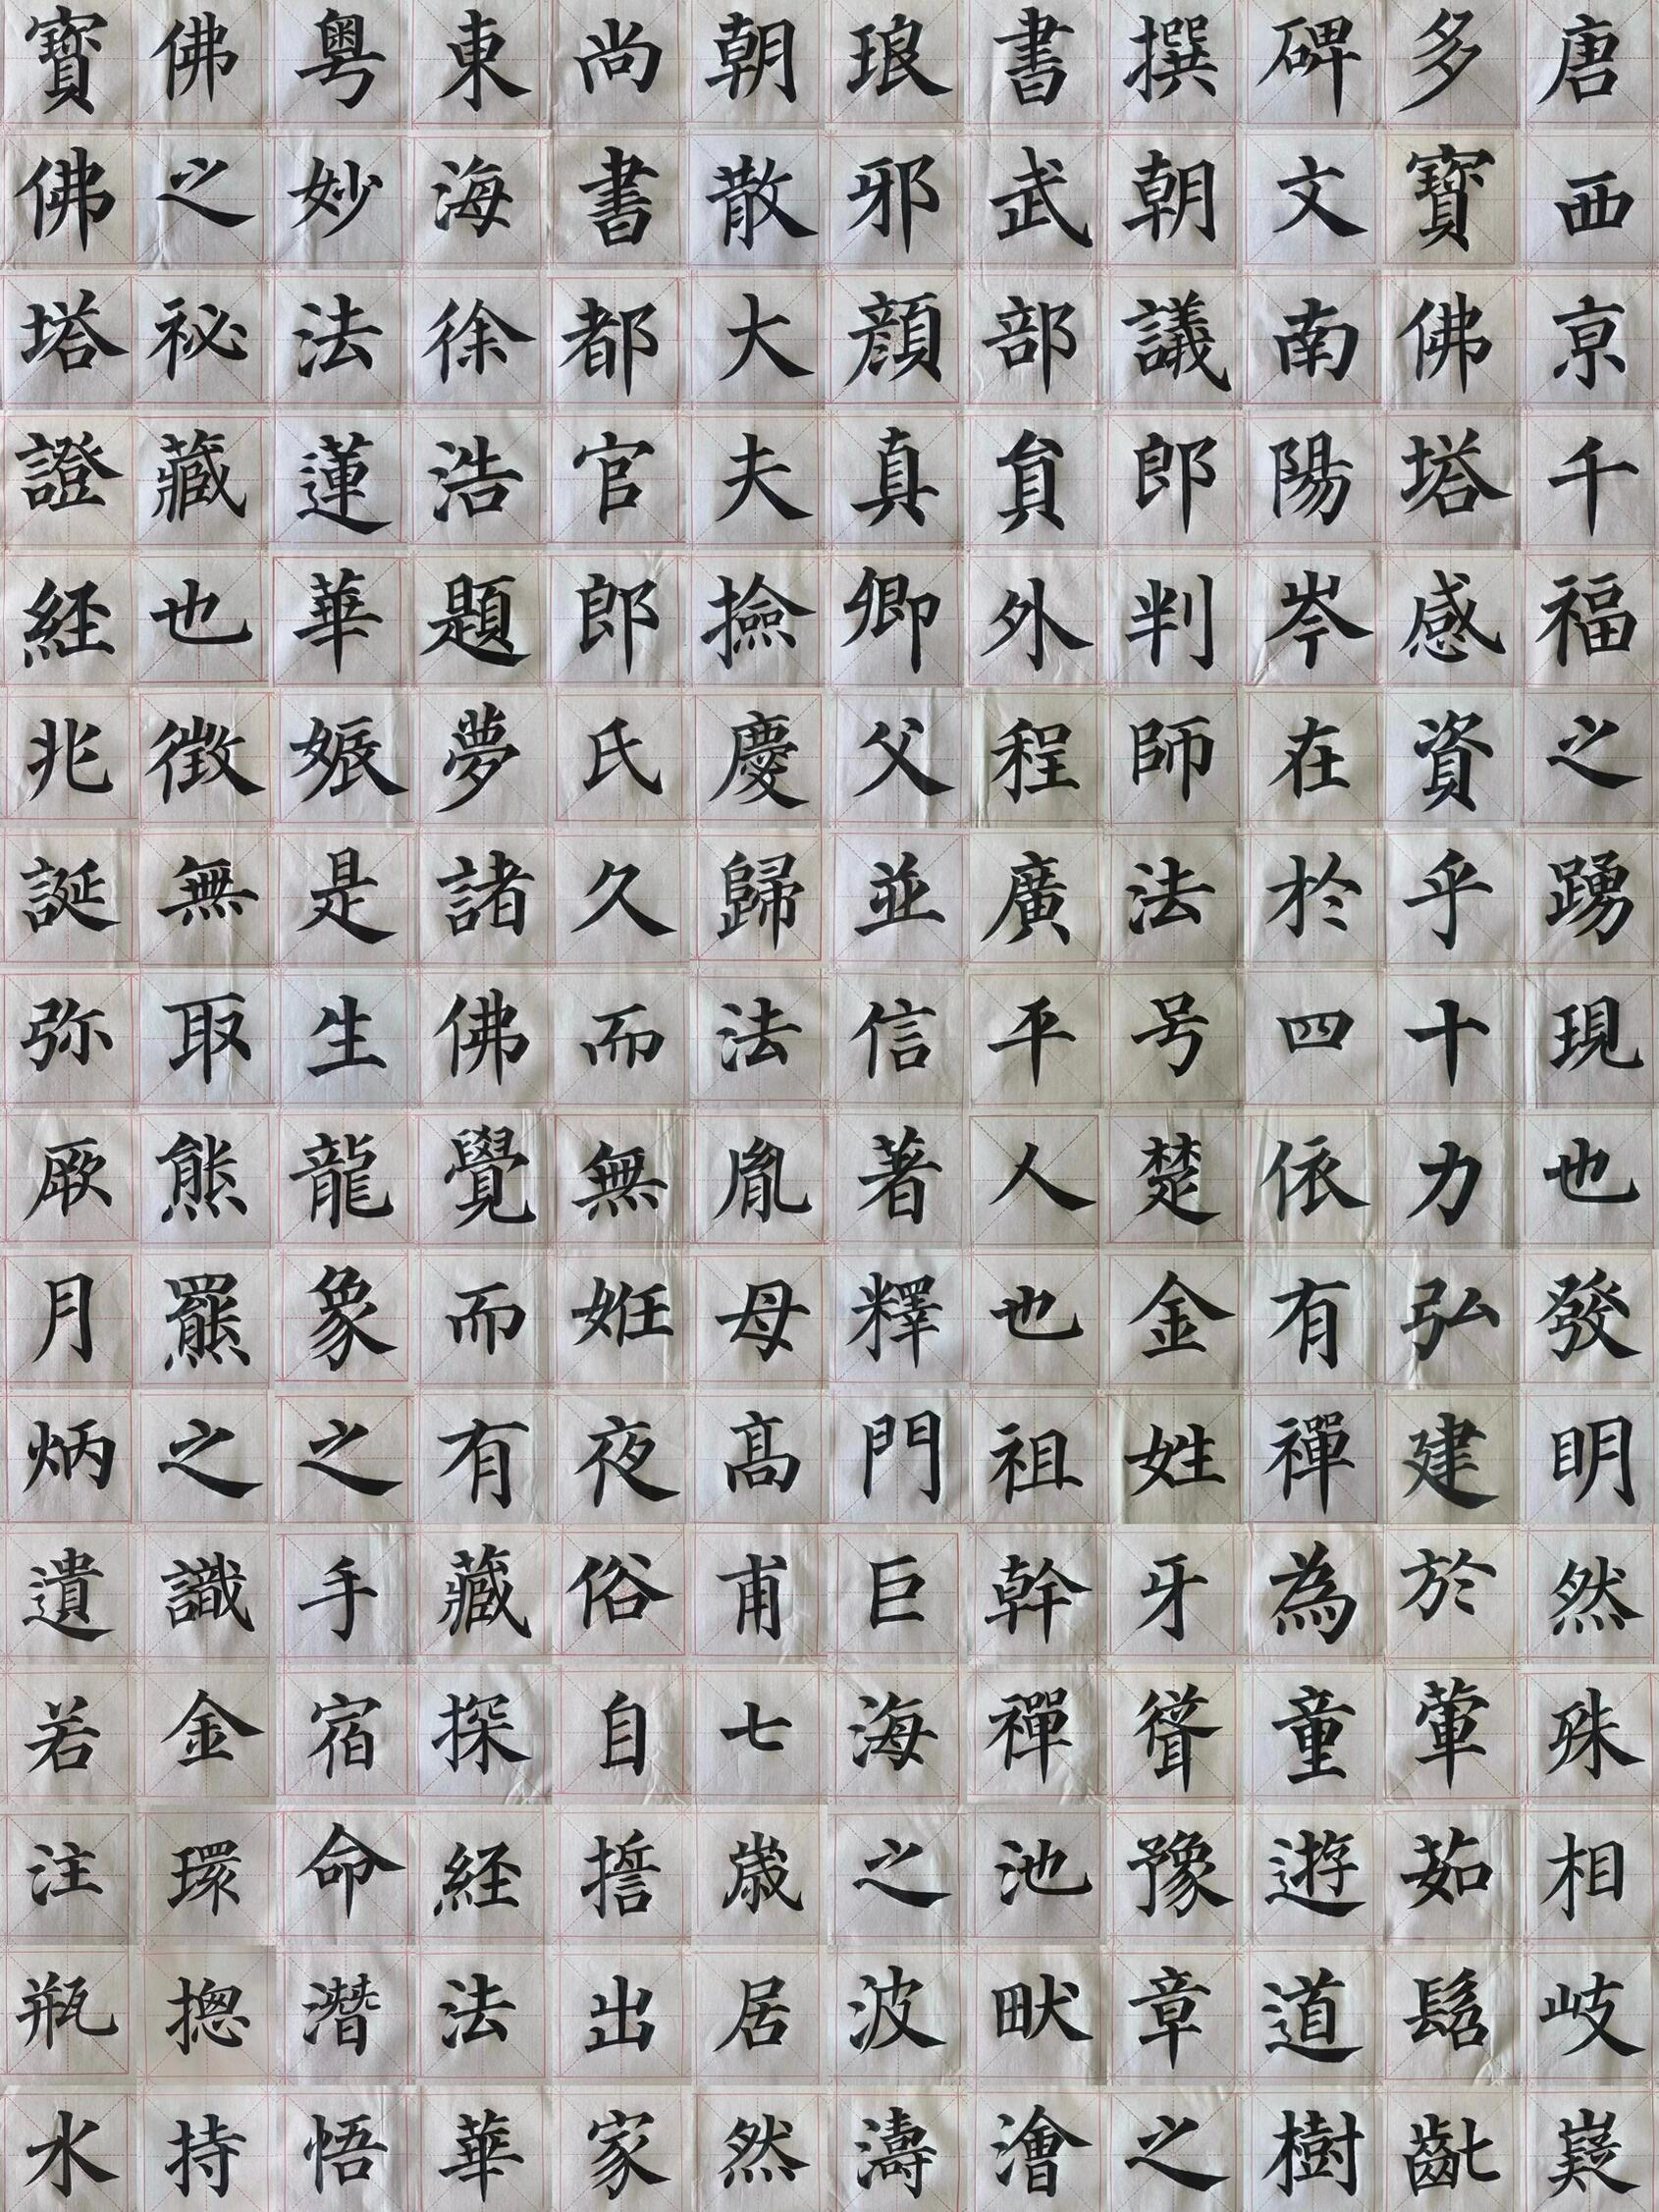 唐西亰千福之踴現也發明然殊相岐嶷
多寶佛塔感資乎十力弘建於葷茹髫齔
碑文南陽岑在於四依有禪為童遊道樹
撰朝議郎判師法号楚金姓牙聳豫章之
書武部貟外程廣平人也祖幹禪池畎澮
琅邪顏真卿父並信著釋門巨海之波濤
朝散大夫撿慶歸法胤母髙甫七歲居然
尚書都官郎氏久而無姙夜俗自誓出家
東海徐浩題夢諸佛覺而有藏探経法華
粤妙法蓮華娠是生龍象之手宿命潛悟
佛之祕藏也徵無取熊羆之識金環揔持
寶佛塔證経兆誕弥厥月炳遺若注瓶水